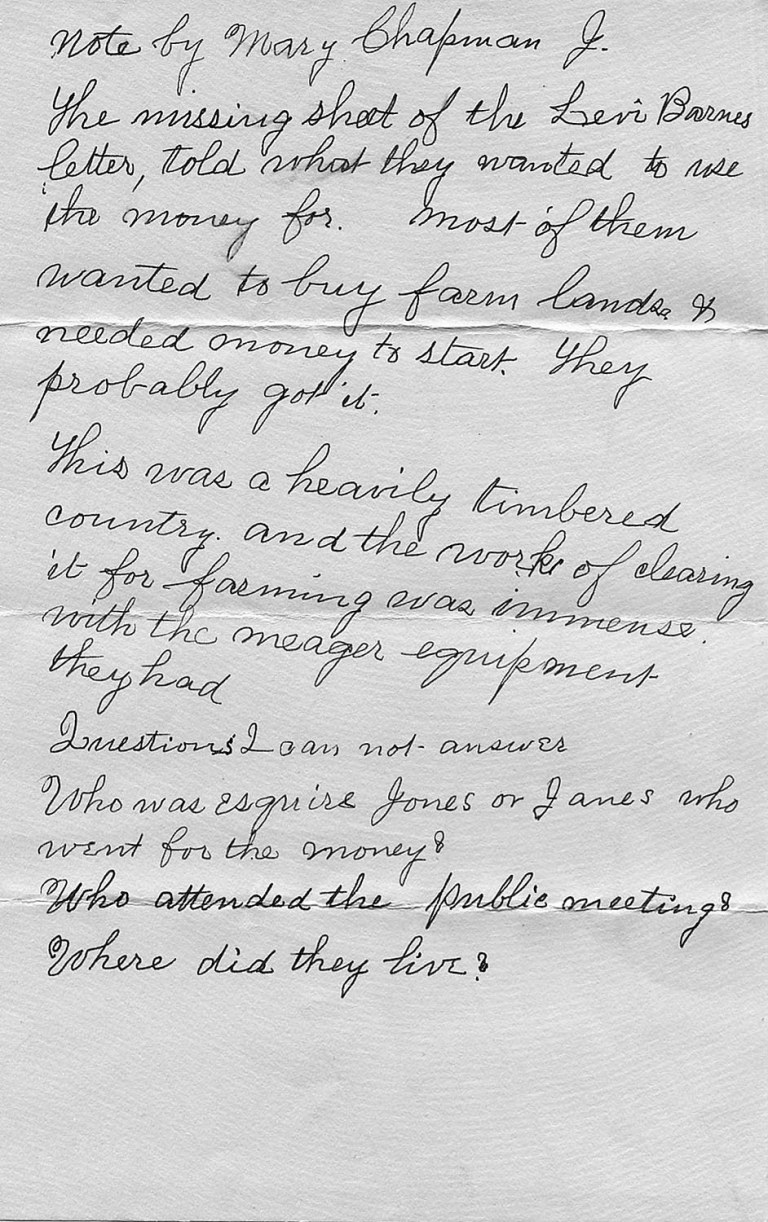 Note by Mary Chapman J.
The missing sheet of the Levi Barnes
letter, told what they wanted to use
the money for. Most of them
wanted to buy farm lands &
needed money to start. They
probably got it.
This was a heavily timbered
country. and the work of clearing
it for farming was immense.
with the meager equipment
they had
Questions I can not answer
Who was esquire Jones or Janes who
went for the money?
Who attended the public meeting?
Where did they live?